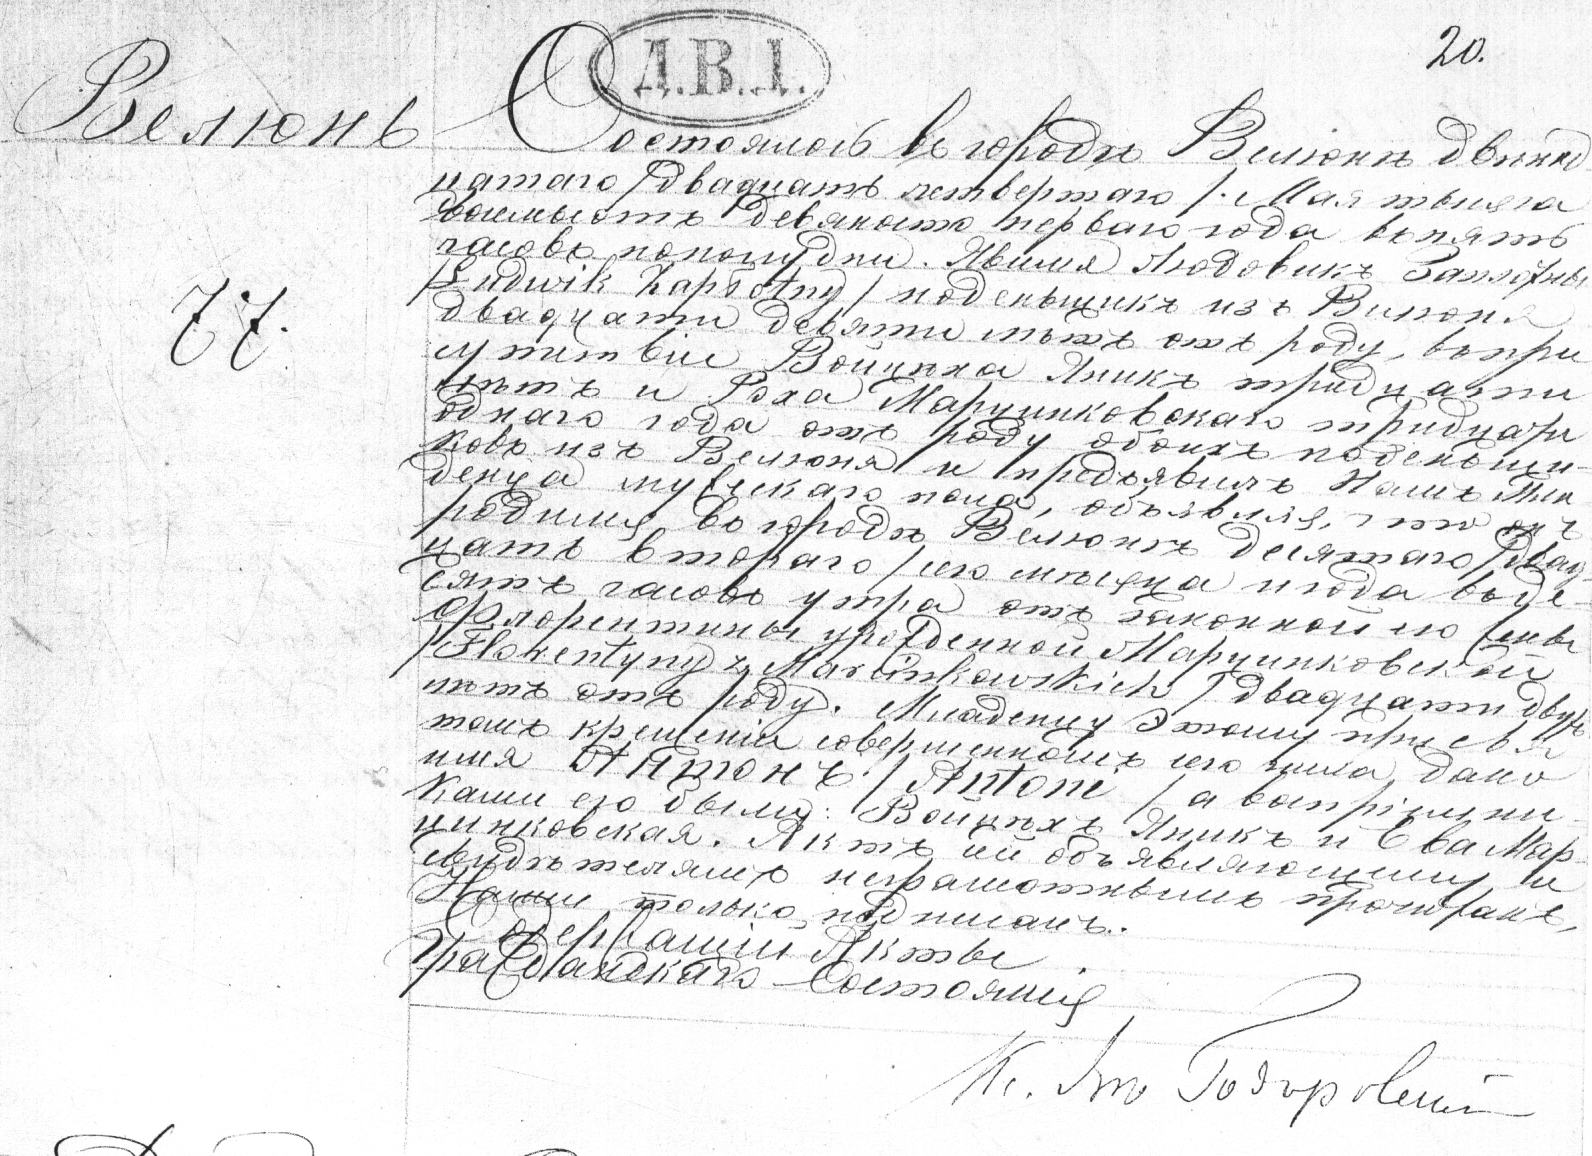 Д.В.Д.
20.
Велюнь
77.
Состоялось въ городѣ Велюнѣ двѣнад-
цатаго /двадцать четвертаго/ Мая тысяча
восемьсотъ девяносто перваго года въ пять
часовъ пополудни. Явился Людовикъ Заплотны
/Ludwik Zapłotny/ поденьщикъ изъ Велюня
двадцати девяти лѣтъ отъ роду, въ при
сутствіи Войцѣха Яникъ тридцати
лѣтъ и Роха Марцинковскаго тридцати
однаго года отъ роду обоихъ поденьщи-
ковъ изъ Велюня и предъявилъ Намъ Мла
денца мужескаго пола, объявляя, что онъ
родился въ городѣ Велюнѣ десятаго /двад
цать втораго/ сего мѣсяца и года въ де-
сять часовъ утра отъ законной его жены
Флорентины урожденной Марцинковской
/Florentyny z Marcinkowskich/ двадцати двухъ
лѣтъ отъ роду. Младенцу этому при Свя
томъ крещеніи совершенномъ сего числа, дано
имя Антонъ /Antoni/ а воспріемни-
ками его были: Войцѣхъ Яникъ и Ева Мар-
цинковская. Актъ сей объявляющему и
свидѣтелямъ неграмотнымъ прочитанъ,
Нами только подписанъ.
Содержащій Акты
Гражданскаго Состоянія
Кс.